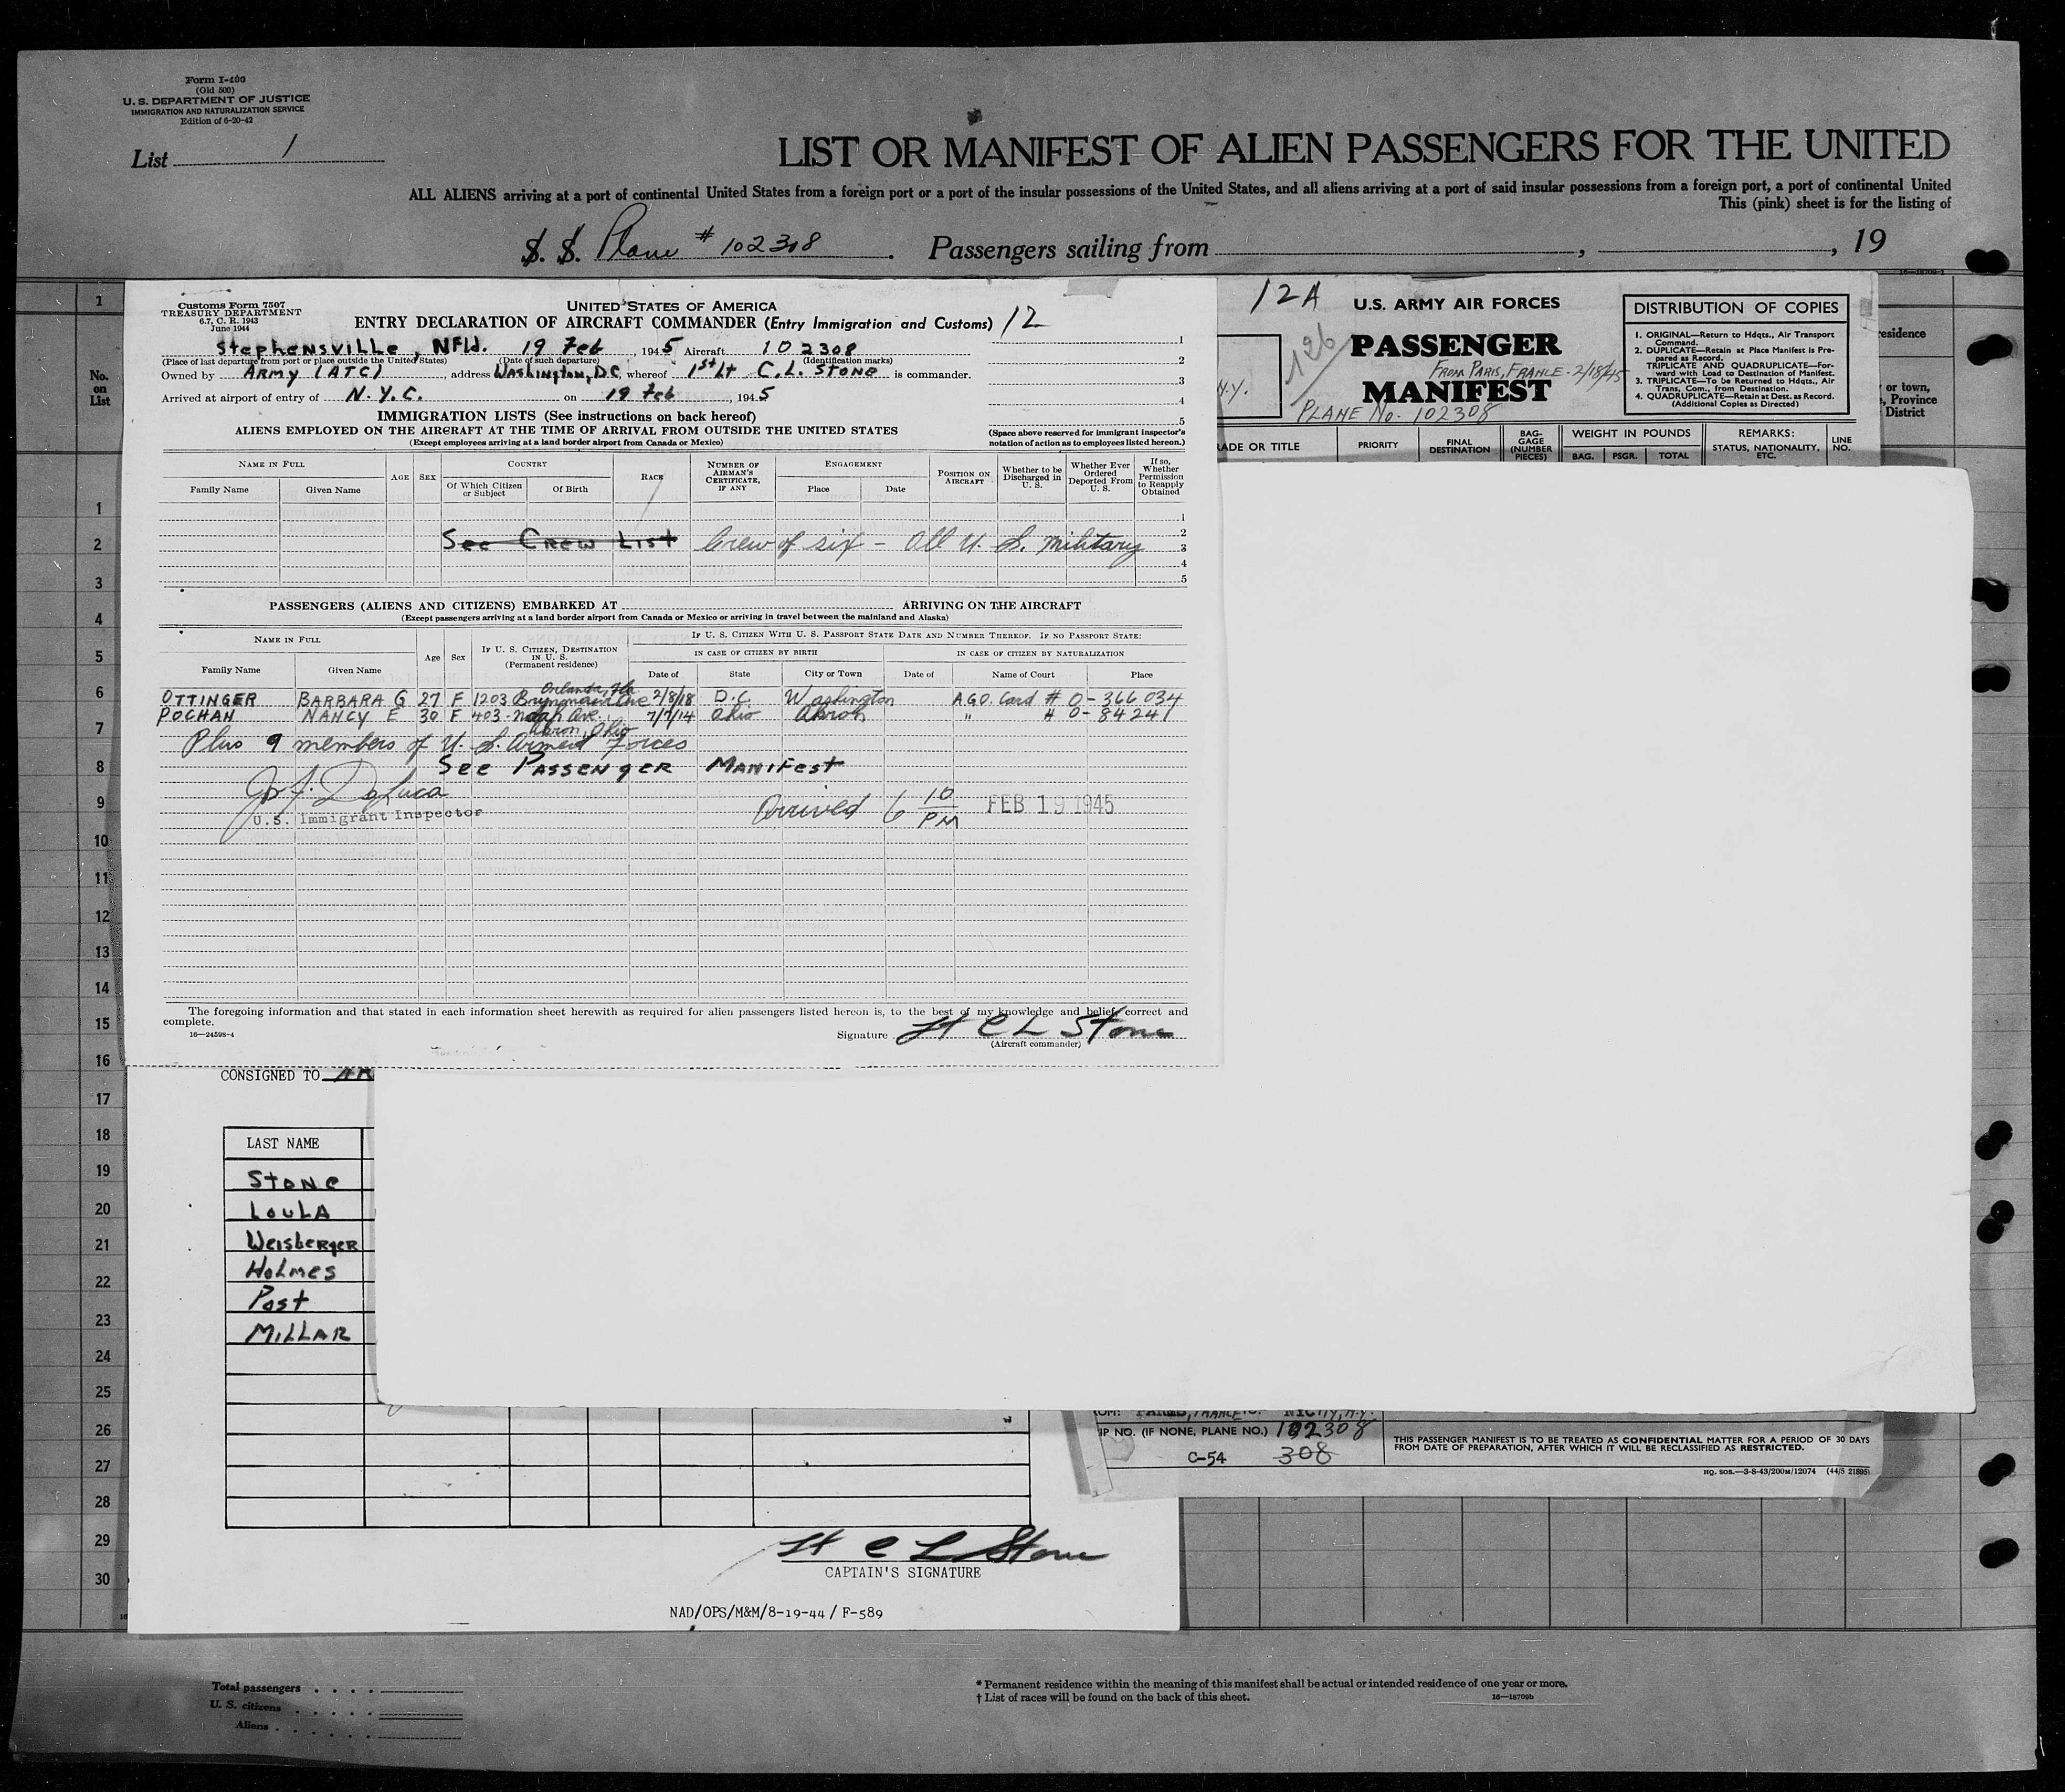 Form I-400
(Old 500)
U. S. DEPARTMENT OF JUSTICE
IMMIGRATION AND NATURALIZATION SERVICE
Edition of 6-20-42
List 1
LIST OR MANIFEST OF ALIEN PASSENGERS FOR THE UNITED
ALL ALIENS arriving at a port of continental United States from a foreign port or a port of the insular possessions of the United States, and all aliens arriving at a port of said insular possessions from a foreign port, a port of continental United
This (pink) sheet is for the listing of
S. S. Plane # 102308. Passengers sailing from , , 19
No. on List
1
2
3
4
5
6
7
8
9
10
11
12
13
14
15
16
17
18
19
20
21
22
23
24
25
26
27
28
29
30
Customs Form 7507
TREASURY DEPARTMENT
6.7, C. R. 1943
June 1944
UNITED STATES OF AMERICA
ENTRY DECLARATION OF AIRCRAFT COMMANDER (Entry Immigration and Customs) 12
Stephensville, NFld. 19 Feb, 1945 Aircraft 102308
(Place of last departure from port or place outside the United States) (Date of such departure) (Identification marks)
Owned by ARMY (ATC), address Washington, D.C. whereof 1st Lt C.L. STONE is commander.
Arrived at airport of entry of N.Y.C. on 19 Feb, 1945
1
2
3
4
5
IMMIGRATION LISTS (See instructions on back hereof)
ALIENS EMPLOYED ON THE AIRCRAFT AT THE TIME OF ARRIVAL FROM OUTSIDE THE UNITED STATES
(Except employees arriving at a land border airport from Canada or Mexico)
(Space above reserved for immigrant inspector's notation of action as to employees listed hereon.)
NAME IN FULL
Family Name
Given Name
AGE
SEX
COUNTRY
Of Which Citizen or Subject
Of Birth
RACE
NUMBER OF AIRMAN'S CERTIFICATE, IF ANY
ENGAGEMENT
Place
Date
POSITION ON AIRCRAFT
Whether to be Discharged in U. S.
Whether Ever Ordered Deported From U. S.
If so, Whether Permission to Reapply Obtained
1
2
3
4
5
See Crew List Crew of six - All U. S. Military
PASSENGERS (ALIENS AND CITIZENS) EMBARKED AT ARRIVING ON THE AIRCRAFT
(Except passengers arriving at a land border airport from Canada or Mexico or arriving in travel between the mainland and Alaska)
NAME IN FULL
Family Name
Given Name
Age
Sex
IF U. S. CITIZEN, DESTINATION IN U. S.
(Permanent residence)
IF U. S. CITIZEN WITH U. S. PASSPORT STATE DATE AND NUMBER THEREOF. IF NO PASSPORT STATE:
IN CASE OF CITIZEN BY BIRTH
IN CASE OF CITIZEN BY NATURALIZATION
Date of
State
City or Town
Date of
Name of Court
Place
Orlando, Fla
OTTINGER BARBARA G 27 F 1203 Ave 2/8/18 D.C. Washington A.G.O. Card # O-366034
POCHAN NANCY E 30 F 403 Noah Ave. 7/7/14 Ohio Akron " # O-84241
Akron, Ohio
Plus 9 members of U. S. Armed Forces
See Passenger Manifest
DeLuca
U.S. Immigrant Inspector
Arrived 6 10 PM FEB 19 1945
The foregoing information and that stated in each information sheet herewith as required for alien passengers listed hereon is, to the best of my knowledge and belief, correct and
complete.
16—24598-4
Signature Lt C L Stone
(Aircraft commander)
12A
126
N.Y.
U.S. ARMY AIR FORCES
PASSENGER
FROM PARIS, FRANCE - 2/18/45
MANIFEST
PLANE No. 102308
DISTRIBUTION OF COPIES
1. ORIGINAL—Return to Hdqts., Air Transport Command.
2. DUPLICATE—Retain at Place Manifest is Prepared as Record.
TRIPLICATE AND QUADRUPLICATE—Forward with Load to Destination of Manifest.
3. TRIPLICATE—To be Returned to Hdqts., Air Trans, Com., from Destination.
4. QUADRUPLICATE—Retain at Dest. as Record.
(Additional Copies as Directed)
ADE OR TITLE
PRIORITY
FINAL DESTINATION
BAGGAGE (NUMBER PIECES)
WEIGHT IN POUNDS
BAG.
PSGR.
TOTAL
REMARKS: STATUS, NATIONALITY, ETC.
LINE NO.
esidence
or town,
, Province
District
CONSIGNED TO
LAST NAME
Stone
Loula
Weisberger
Holmes
Post
Millar
Lt C L Stone
CAPTAIN'S SIGNATURE
NAD/OPS/M&M/8-19-44 / F-589
OM: PARIS, FRANCE
IP NO. (IF NONE, PLANE NO.) 102308
C-54 308
THIS PASSENGER MANIFEST IS TO BE TREATED AS CONFIDENTIAL MATTER FOR A PERIOD OF 30 DAYS
FROM DATE OF PREPARATION, AFTER WHICH IT WILL BE RECLASSIFIED AS RESTRICTED.
HQ. SOS.—3-8-43/200M/12074 (44/5 21895)
Total passengers
U. S. citizens
Aliens
* Permanent residence within the meaning of this manifest shall be actual or intended residence of one year or more.
† List of races will be found on the back of this sheet.
16—18709b